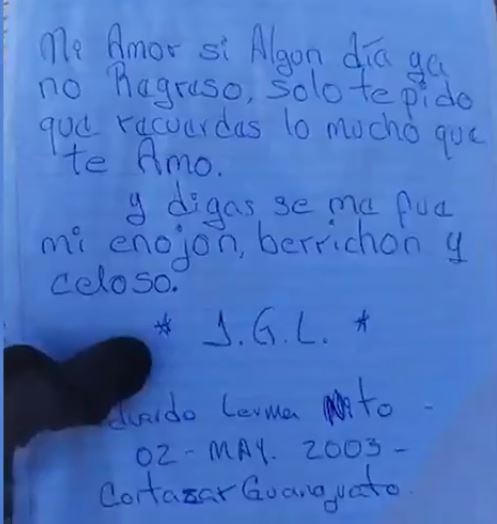 Mi Amor si Algon día ya
no Ragraso, solo te pido
que racuerdas lo mucho que
te Amo.
y digas se ma fua
mi enojon, berrichon y
celoso.
* J.G.L. *
duardo Lerma
02 - MAY. 2003 -
Cortazar Guanajuato.